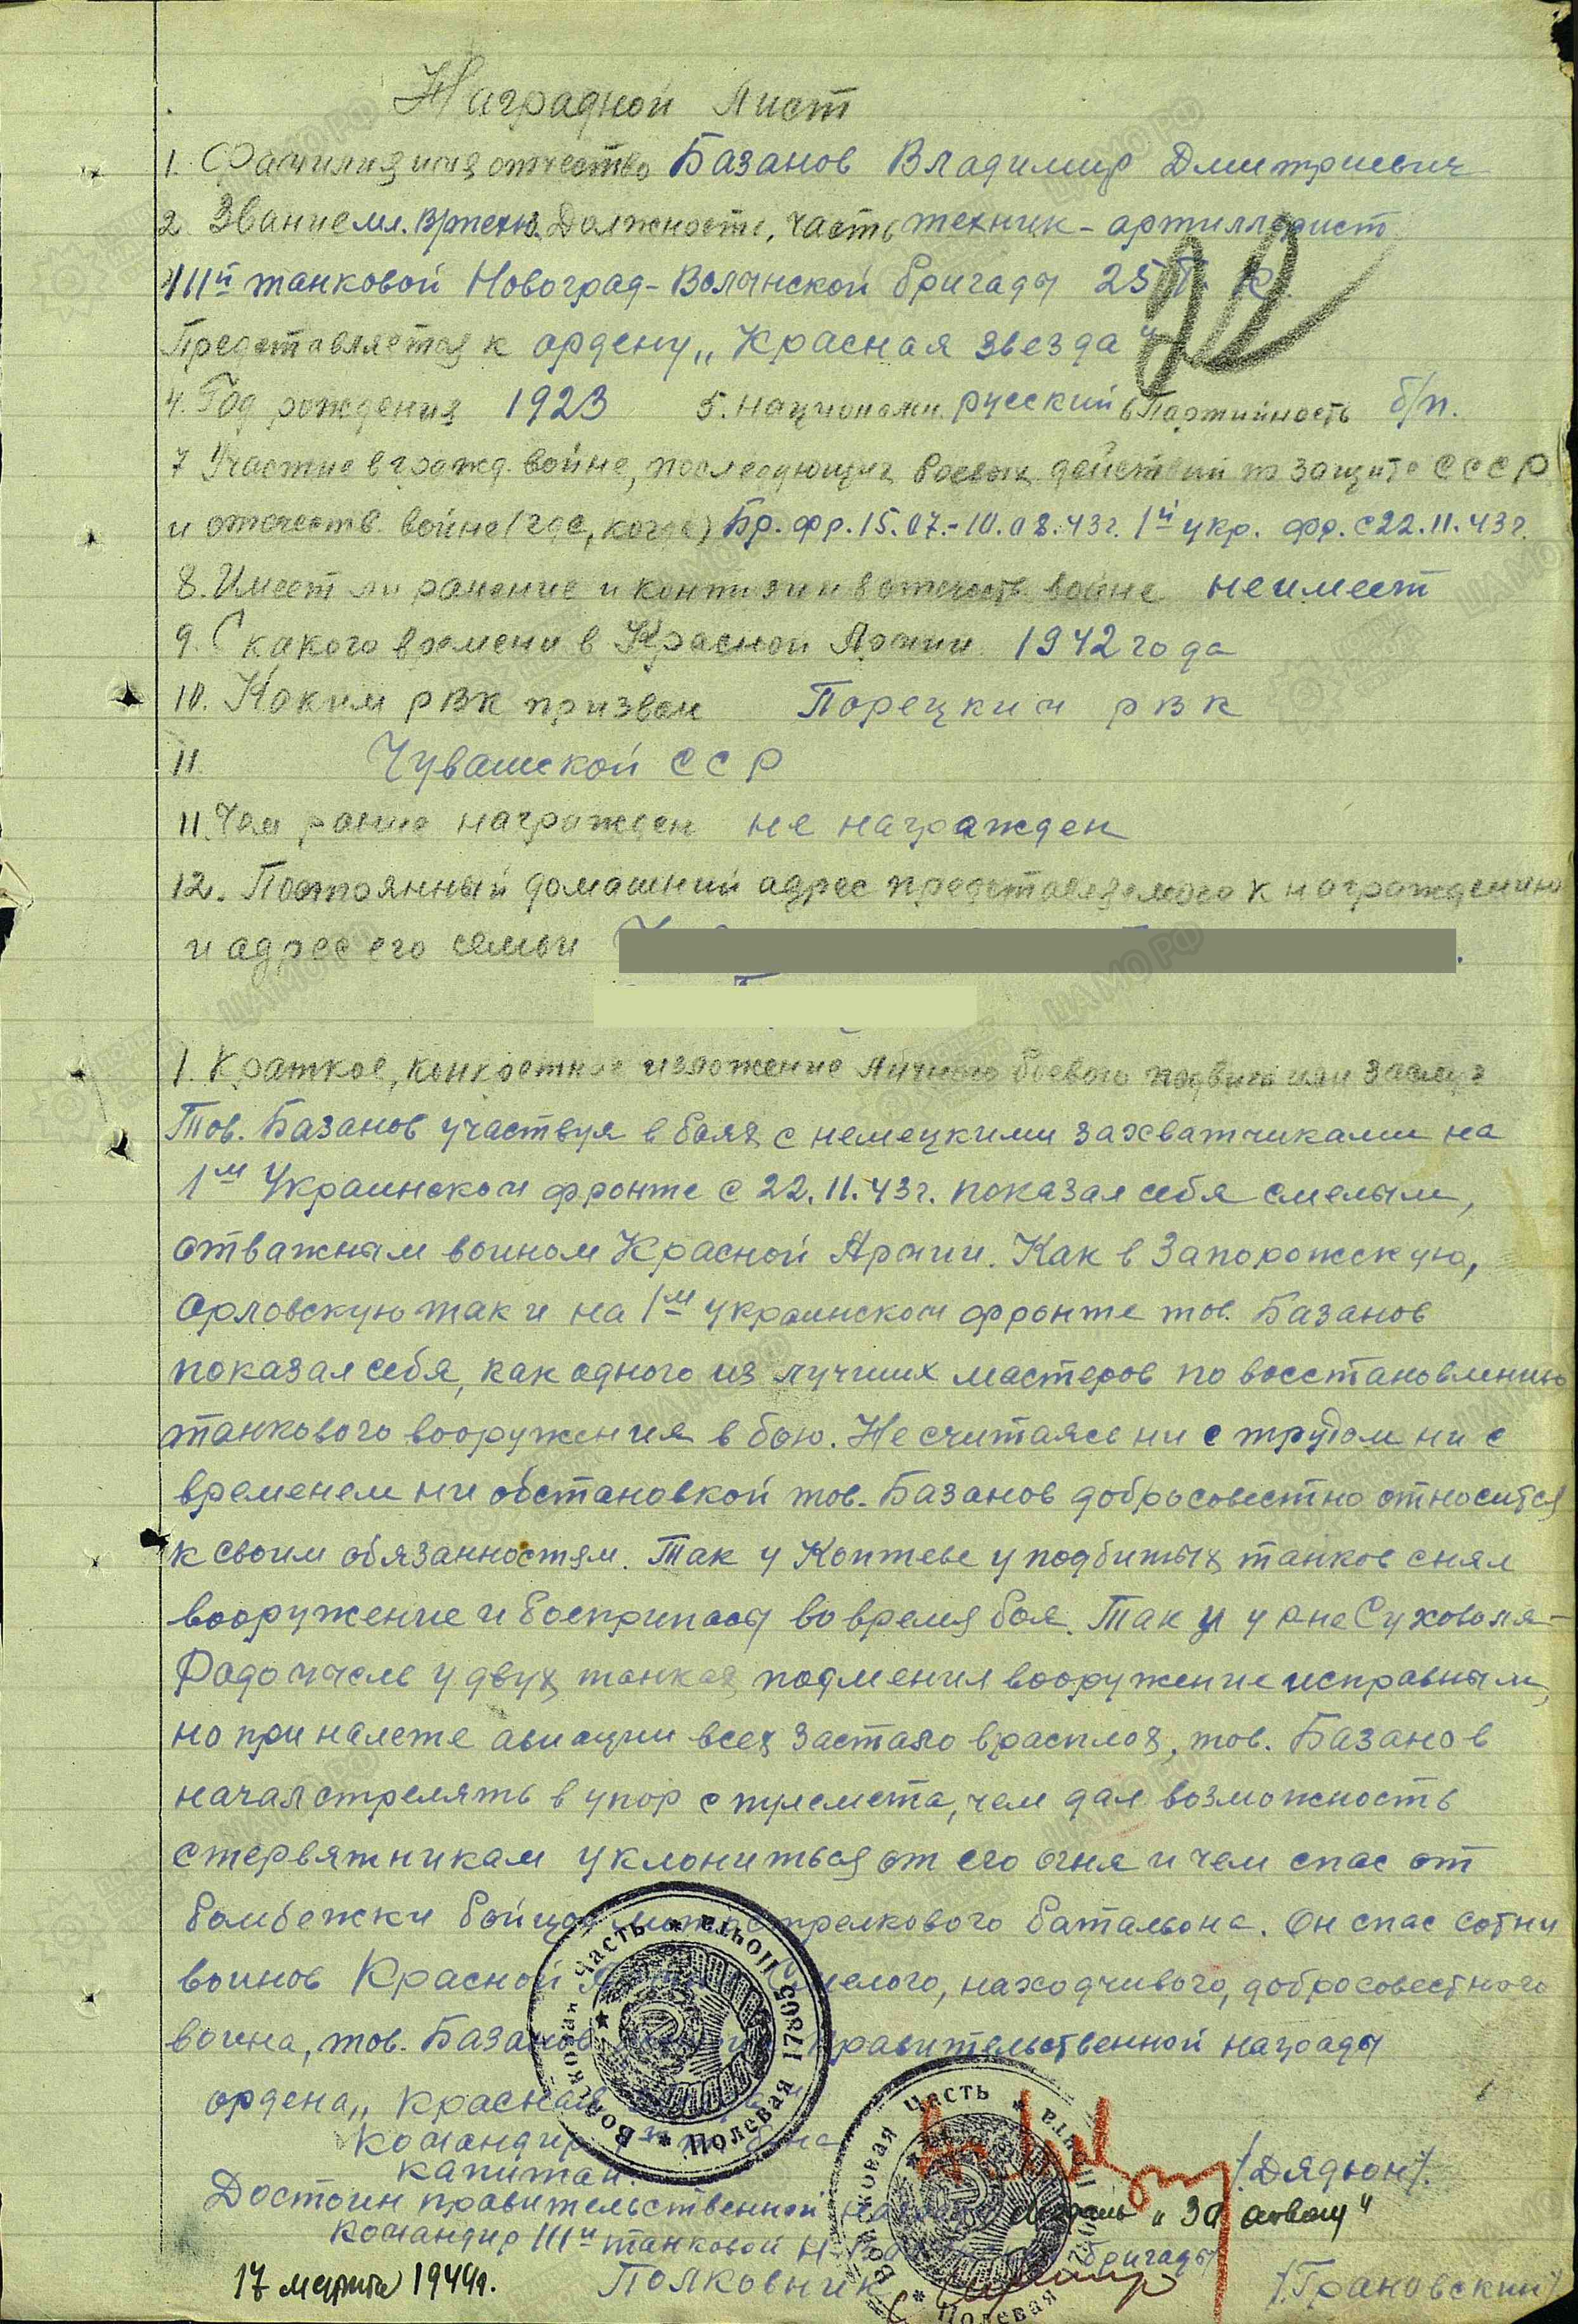 Наградной Лист
1. Фамилия имя отчество Базанов Владимир Дмитриевич
2 Звание мл. в/техн. Должность, часть техник-артиллерист
111й танковой Новоград-Волынской бригады 25 Т. К.
Представляется к ордену „Красная звезда“
4. Год рождения 1923 5. Национальн. русский 6 Партийность б/п.
7 Участие в гражд. войне, последующих боевых действий по защите СССР
и отечеств. войне (где, когда) Бр. фр. 15.07.-10.08.43г. 1й укр. фр. с 22.11.43г.
8. Имеет ли ранение и контузии в отечеств. войне не имеет
9. С какого времени в Красной Армии 1942 года
10. Каким РВК призван Порецким РВК
11. Чувашской ССР
11. Чем ранее награжден не награжден
12. Постоянный домашний адрес представляемого к награждению
и адрес его семьи
1. Краткое, конкретное изложение личного боевого подвига или заслуг
Тов. Базанов участвуя в боях с немецкими захватчиками на
1м Украинском фронте с 22.11.43г. показал себя смелым,
отважным воином Красной Армии. Как в Запорожскую,
Орловскую так и на 1м украинском фронте тов. Базанов
показал себя, как одного из лучших мастеров по восстановлению
танкового вооружения в бою. Не считаясь ни с трудом ни с
временем ни обстановкой тов. Базанов добросовестно относится
к своим обязанностям. Так у Коптеве у подбитых танков снял
вооружение и боеприпасы во время боя. Так и у р-не Суховоля-
Радомысль у двух танках подменил вооружение исправным,
но при налете авиации всех застало врасплох, тов. Базанов
начал стрелять в упор с пулемета, чем дал возможность
стервятникам уклониться от его огня и чем спас от
бомбежки бойцов мотострелкового батальона. Он спас сотни
воинов Красной Смелого, находчивого, добросовестного
воина, тов. Базанов правительственной награды
ордена „Красная
Командир
капитан. /Дядюн/.
Достоин правительственной медаль „За отвагу“
Командир 111й танковой бригады
Полковник /Грановский/
17 марта 1944г.
Войсковая часть * Полевая почта 17805 *
Войсковая часть * Полевая почта
ЦАМО РФ